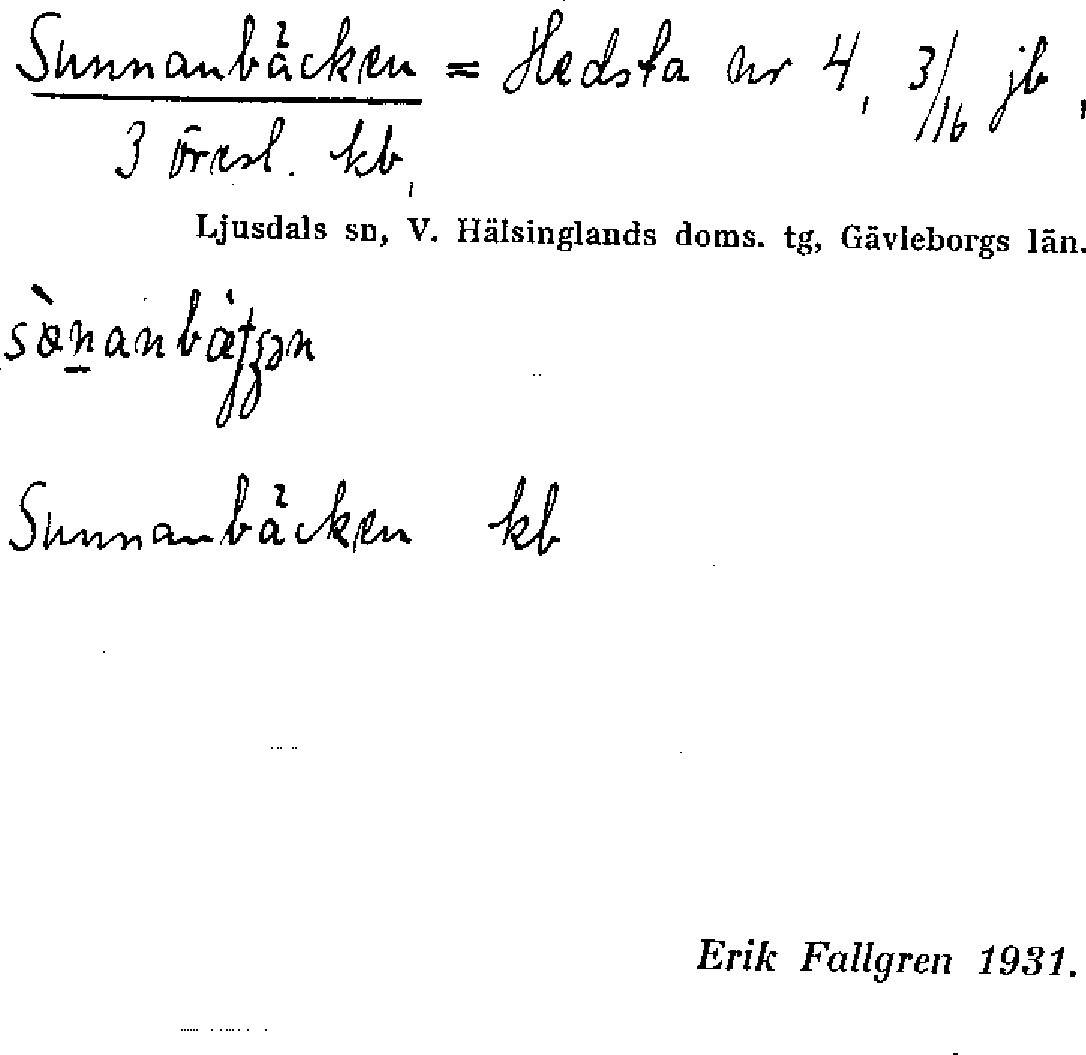 Sunnanbäcken = Hedsta nr 4, 3/16 jb,
3 öresl. kb,
Ljusdals sn, V. Hälsinglands doms. tg, Gävleborgs län.
Sunnanbäcken kb
Erik Fallgren 1931.